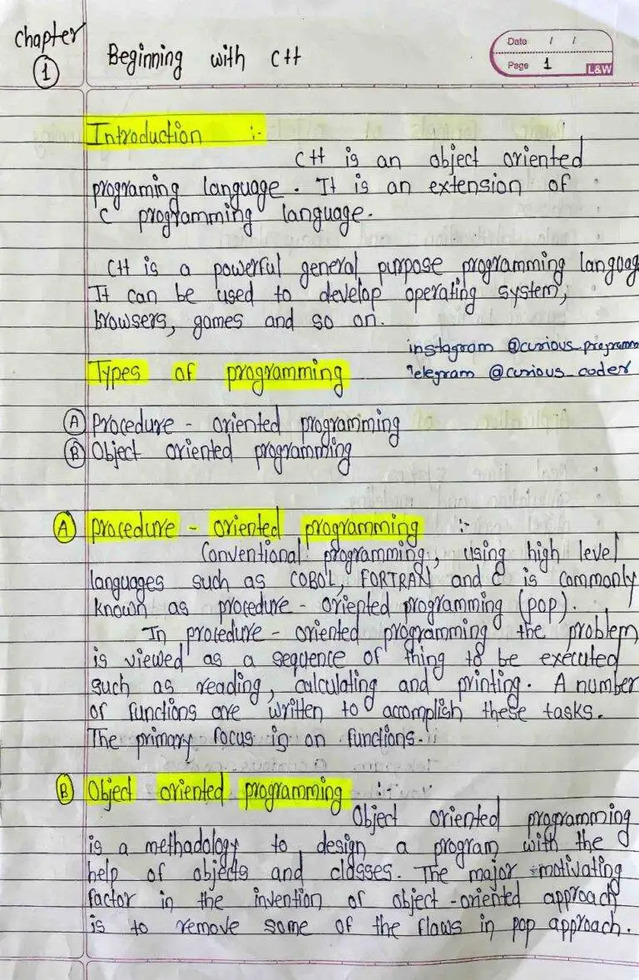 Chapter
①
Beginning with C++
Date / /
Page 1
L&W
Introduction :-
C++ is an object oriented
programing language. It is an extension of
C programming language.
C++ is a powerful general purpose programming languag
It can be used to develop operating system,
browsers, games and so on.
instagram @curious_programm
Telegram @curious_coder
Types of programming
Ⓐ Procedure - oriented programming
Ⓑ Object oriented programming
Ⓐ procedure - oriented programming :-
Conventional programming, using high level
languages such as COBOL, FORTRAN and C is commonly
known as procedure - oriented programming (pop).
In procedure - oriented programming the problem
is viewed as a sequence of thing to be executed
such as reading, calculating and printing. A number
of functions are written to accomplish these tasks.
The primary focus is on functions.
Ⓑ Object oriented programming :-
Object oriented programming
is a methodology to design a program with the
help of objects and classes. The major motivating
factor in the invention of object-oriented approach
is to remove some of the flaws in pop approach.